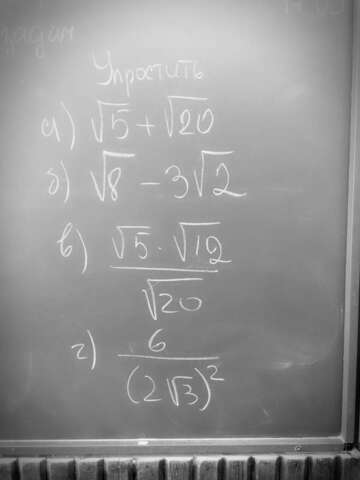 Упростить
а) √5 + √20
б) √8 - 3√2
в) (√5 · √12) / √20
г) 6 / (2√3)²